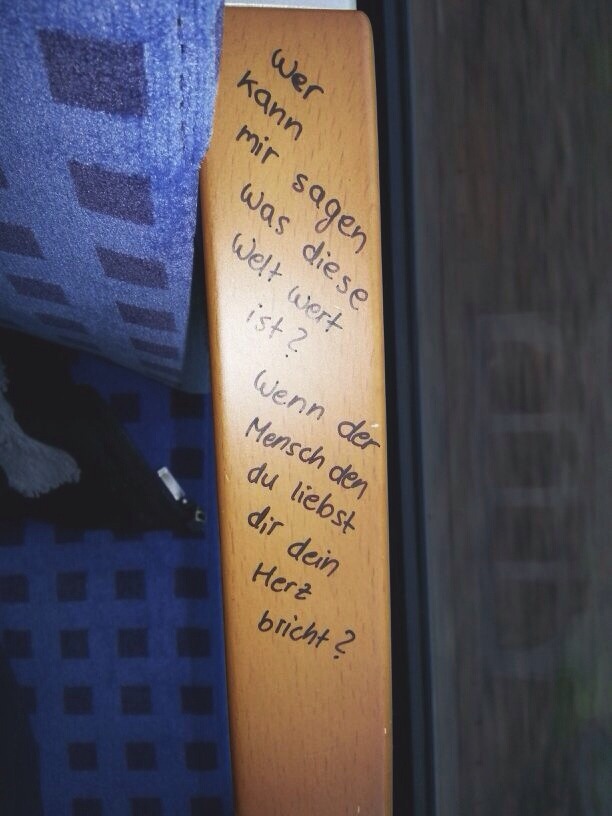 Wer
kann
mir sagen
was diese
Welt wert
ist?
Wenn der
Mensch den
du liebst
dir dein
Herz
bricht?